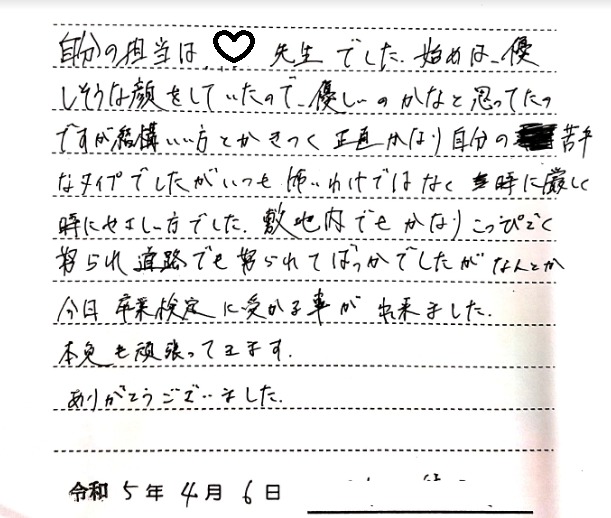 自分の担当は 先生でした。始めは、優
しそうな顔をしていたので、優しいのかなと思ってたの
ですが結構いい方とかきつく正直かなり自分の苦手
なタイプでしたがいつも怖いわけではなく 時に厳しく
時にやさしい方でした。敷地内でもかなりこっぴどく
怒られ道路でも怒られてばっかでしたがなんとか
今日卒業検定に受かる事が出来ました.
本免も頑張ってきます.
ありがとうございました.
令和 5 年 4 月 6 日